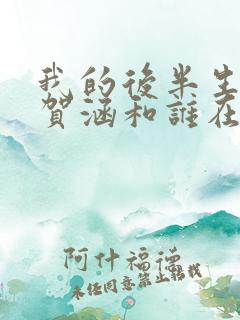 我的後半生
賀涵和誰在
阿什福德
未经同意禁止转载